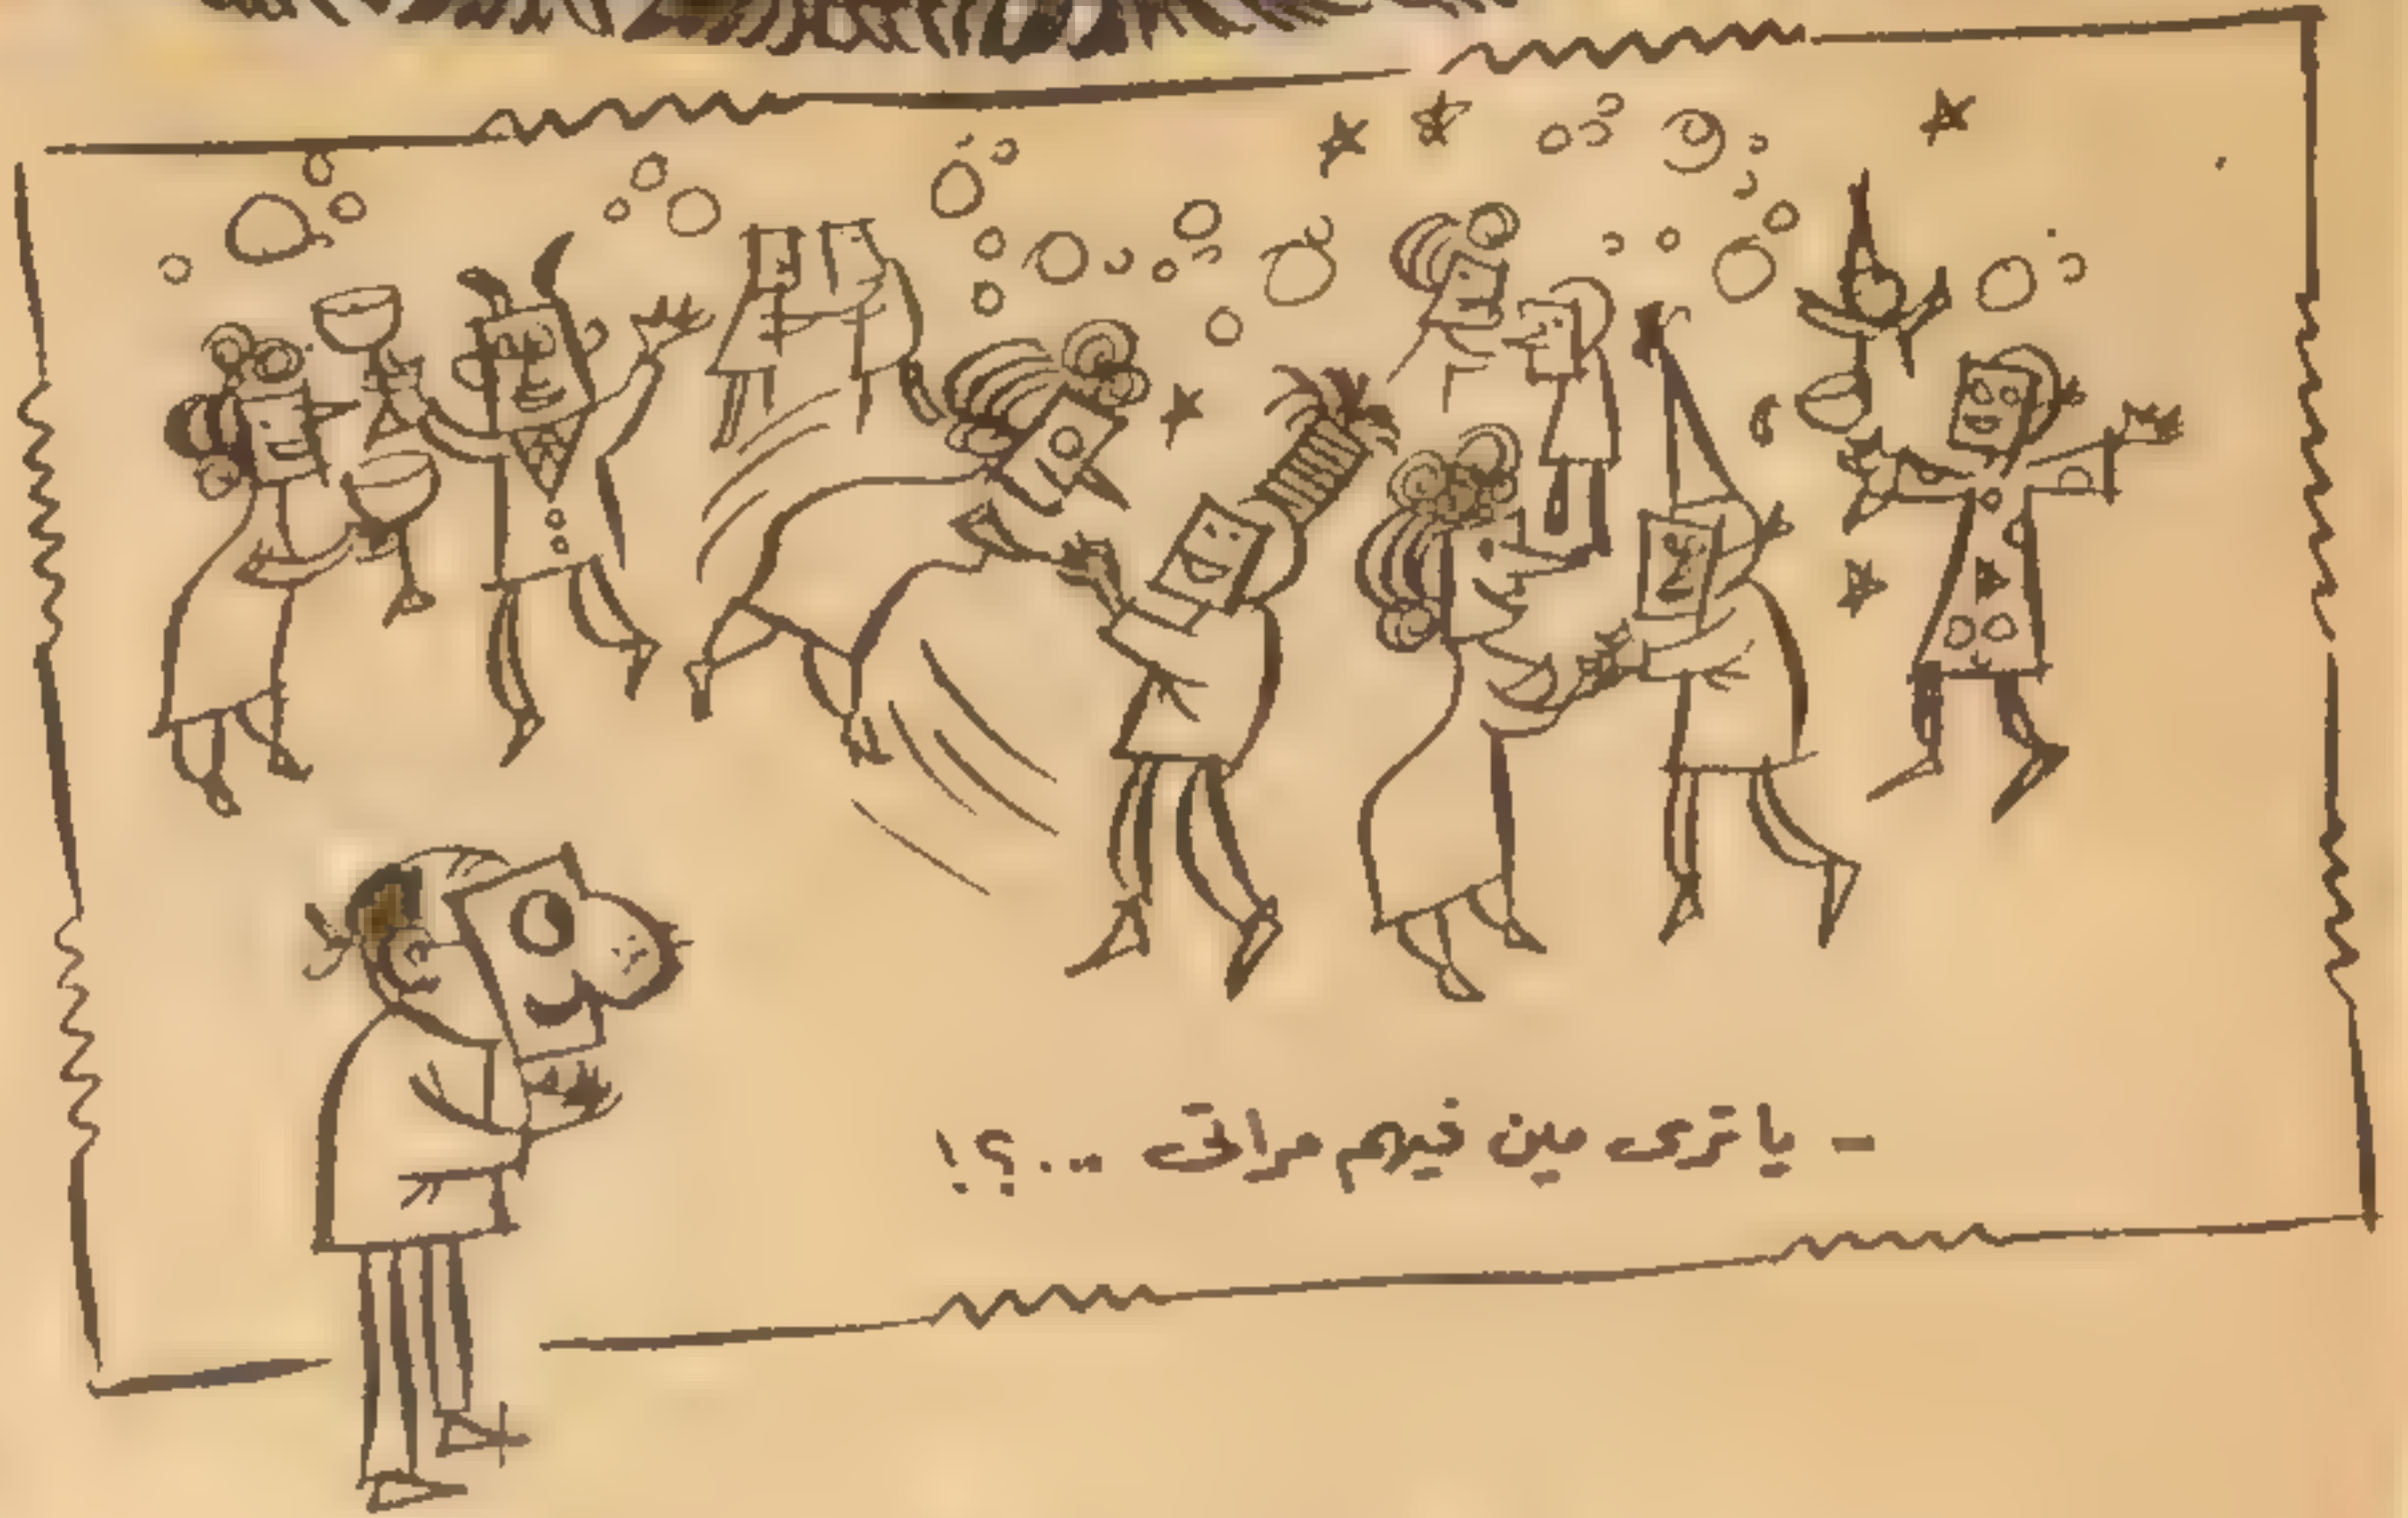 - يا ترى مين فيهم مراتى ...؟!